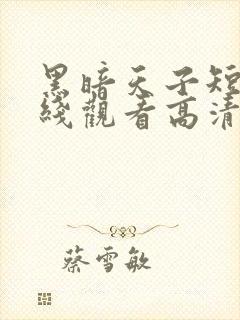 黑暗天子短
綫觀看高清
蔡雪敏